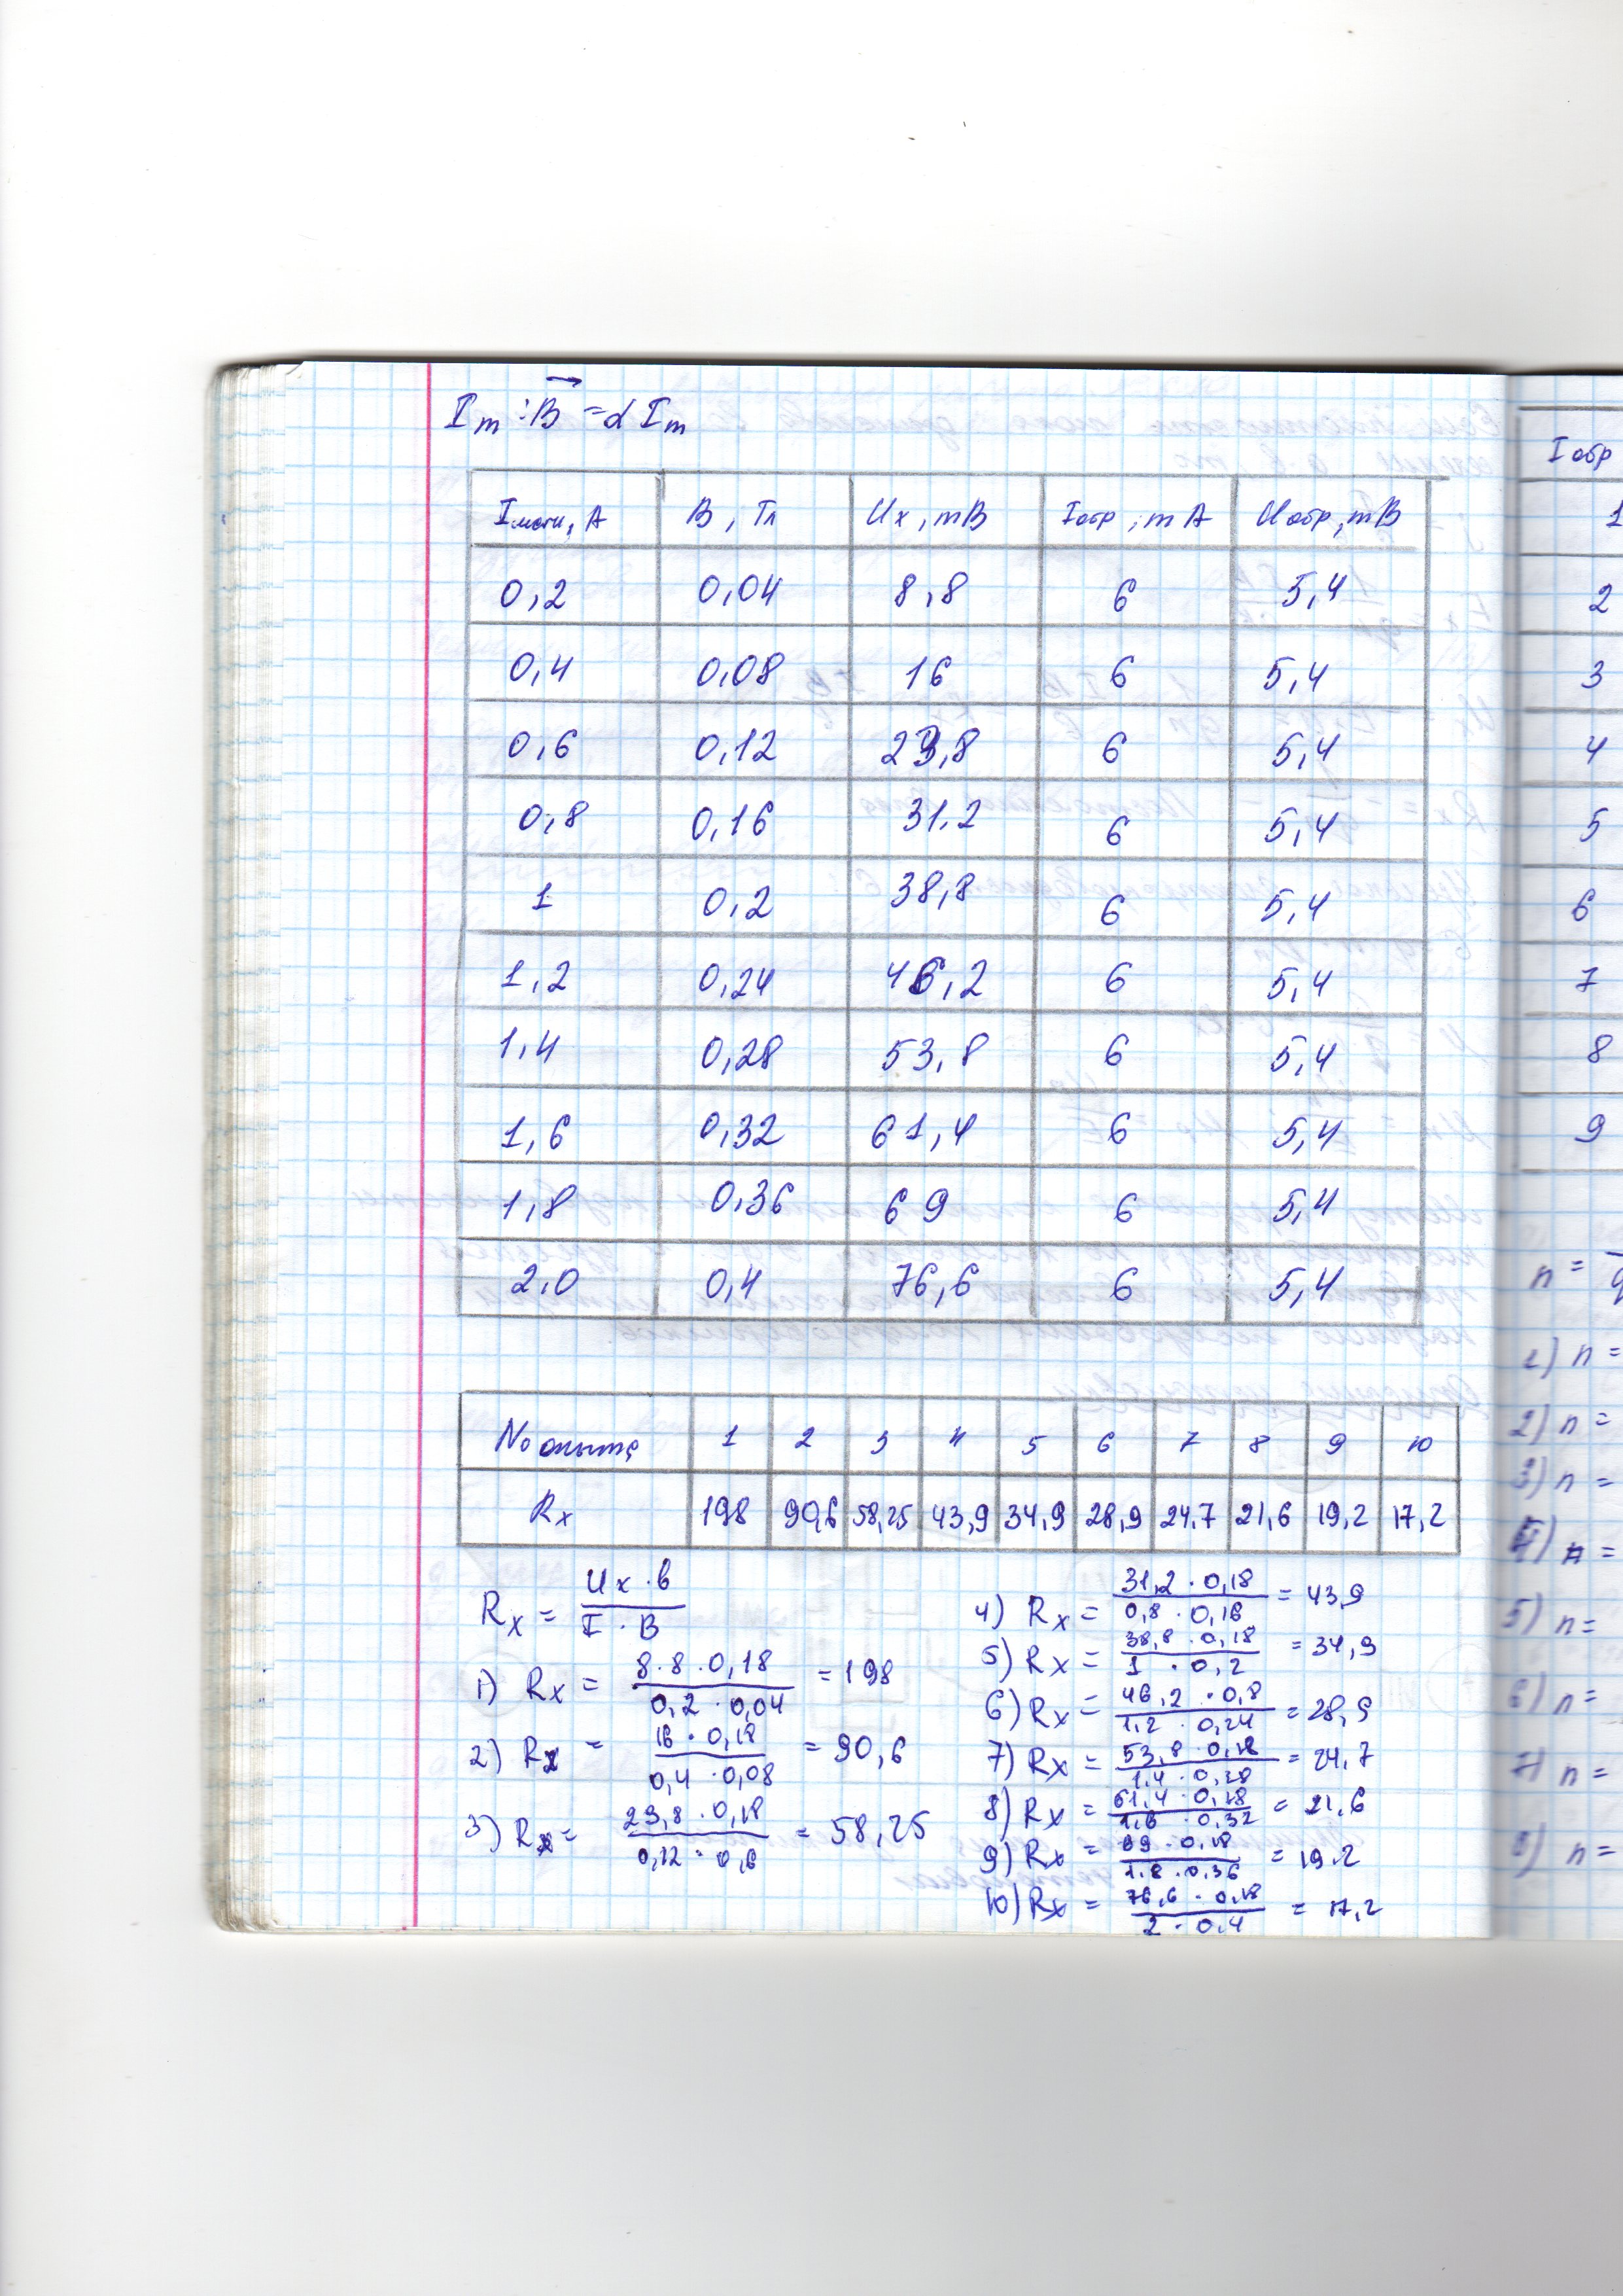 Iₘ : B⃗ = α Iₘ
Iмагн, А | B, Тл | Uх, mВ | Iобр, mА | Uобр, mВ
0,2 | 0,04 | 8,8 | 6 | 5,4
0,4 | 0,08 | 16 | 6 | 5,4
0,6 | 0,12 | 23,8 | 6 | 5,4
0,8 | 0,16 | 31,2 | 6 | 5,4
1 | 0,2 | 38,8 | 6 | 5,4
1,2 | 0,24 | 46,2 | 6 | 5,4
1,4 | 0,28 | 53,8 | 6 | 5,4
1,6 | 0,32 | 61,4 | 6 | 5,4
1,8 | 0,36 | 69 | 6 | 5,4
2,0 | 0,4 | 76,6 | 6 | 5,4
№ опыта | 1 | 2 | 3 | 4 | 5 | 6 | 7 | 8 | 9 | 10
Rх | 198 | 90,6 | 58,25 | 43,9 | 34,9 | 28,9 | 24,7 | 21,6 | 19,2 | 17,2
Rх = (Uх · b) / (I · B)
1) Rх = (8.8 · 0,18) / (0,2 · 0,04) = 198
2) Rх = (16 · 0,18) / (0,4 · 0,08) = 90,6
3) Rх = (23,8 · 0,18) / (0,12 · 0,6) = 58,25
4) Rх = (31,2 · 0,18) / (0,8 · 0,16) = 43,9
5) Rх = (38,8 · 0,18) / (1 · 0,2) = 34,9
6) Rх = (46,2 · 0,8) / (1,2 · 0,24) = 28,9
7) Rх = (53,8 · 0,18) / (1,4 · 0,28) = 24,7
8) Rх = (61,4 · 0,18) / (1,6 · 0,32) = 21,6
9) Rх = (69 · 0,18) / (1.8 · 0,36) = 19.2
10) Rх = (76,6 · 0,18) / (2 · 0,4) = 17,2
Iобр
1
2
3
4
5
6
7
8
9
n =
1) n =
2) n =
3) n =
4) n =
5) n =
6) n =
7) n =
8) n =